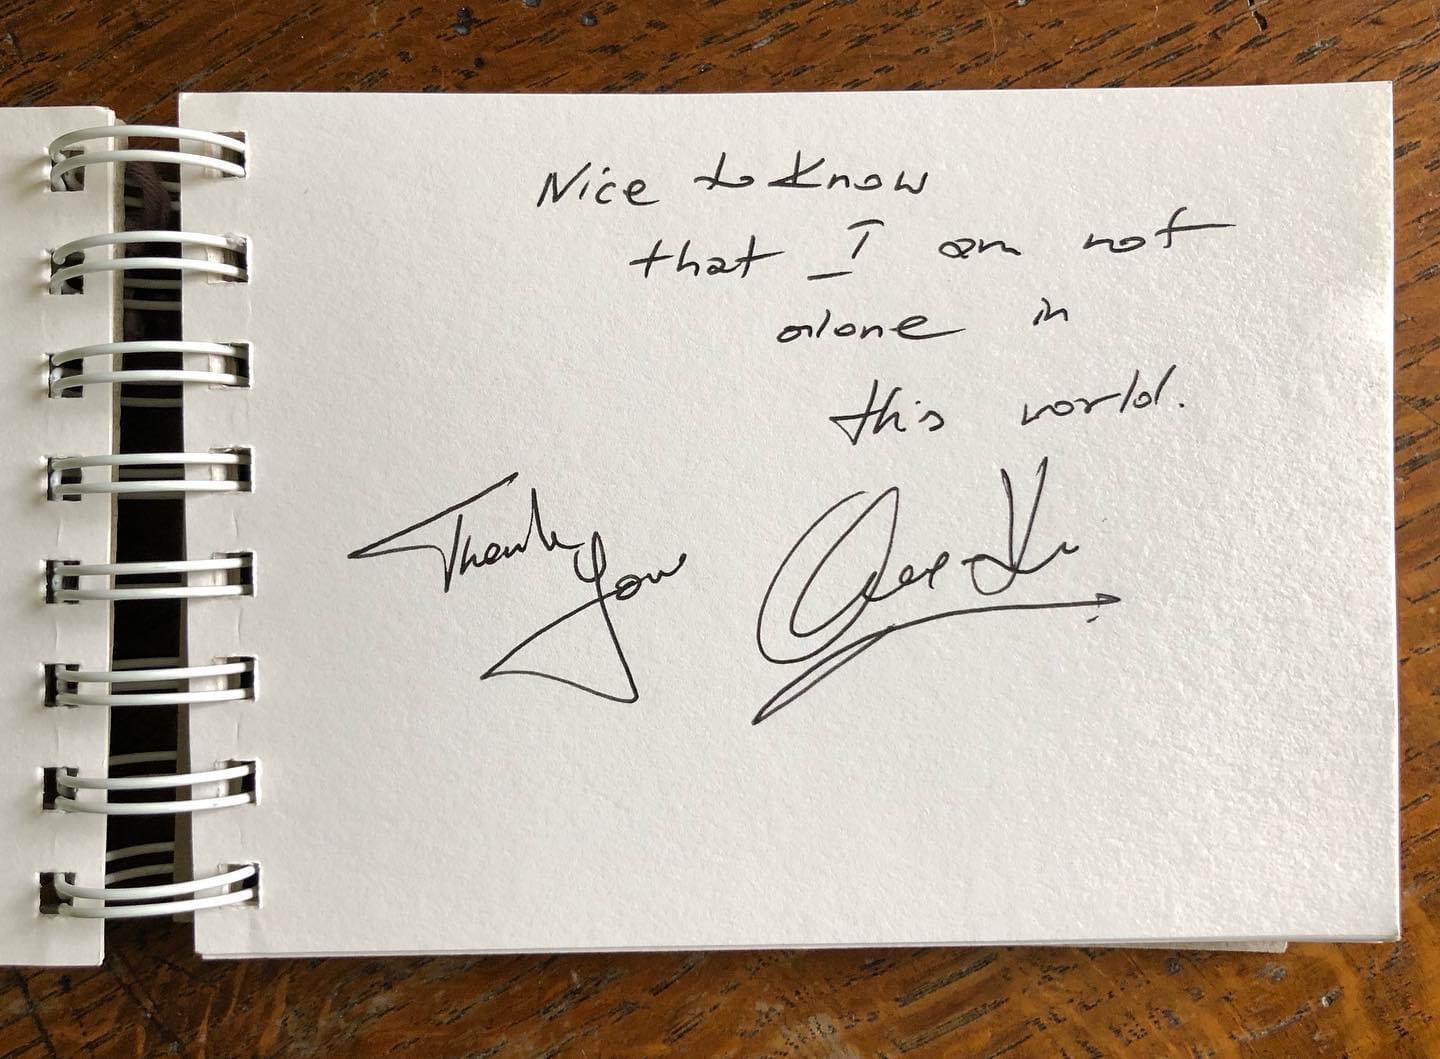 Nice to know
that I am not
alone in
this world.
Thank
You